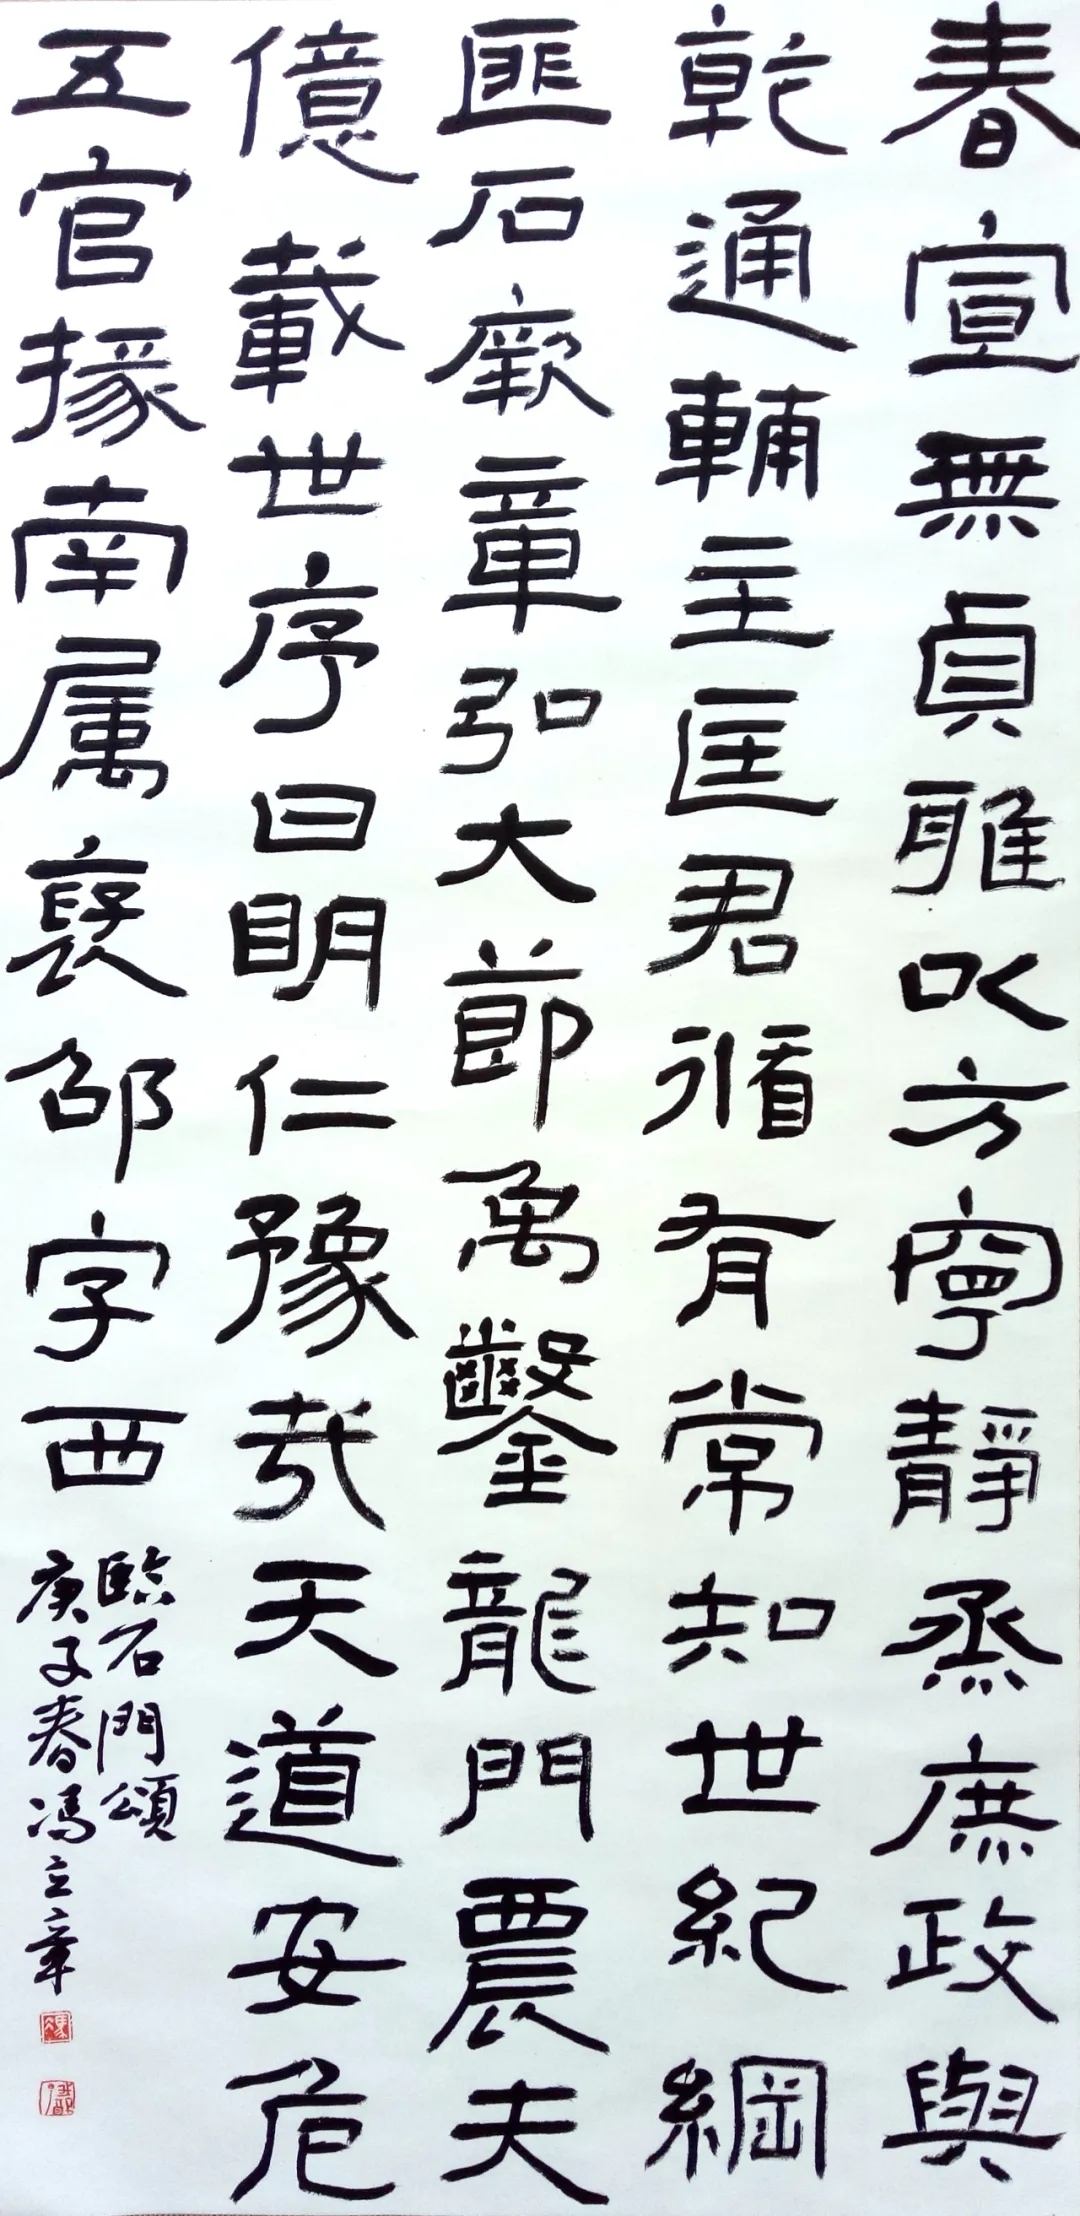 春宣無貞雅以方寧靜烝庶政與
乾通輔主匡君循有常知世紀綱
匪石厥章弘大節萬鑿龍門農夫
億載世序曰明仁豫哉天道安危
五官掾南属襃邵字西
臨石門頌
庚子春冯立章